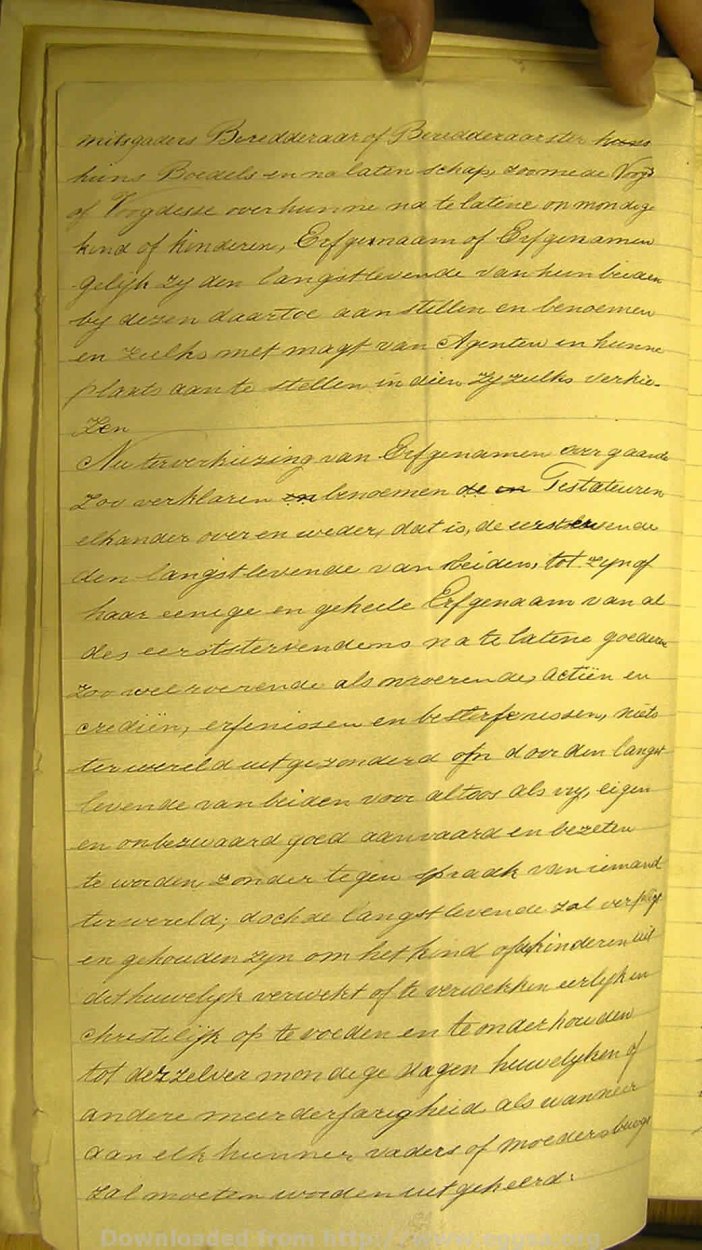 mitsgaders Beredderaar of Beredderaarster huns
huns Boedels en nalatenschap, zoomede Voogd
of Voogdesse over hunne na te latene onmondige
kind of kinderen, Erfgenaam of Erfgenamen
gelijk zy den langstlevende van hun beiden
by dezen daartoe aanstellen en benoemen
en zulks met magt van Agenten in hunne
plaats aan te stellen indien Zy zulks verkie-
zen
Nu ter verkiezing van Erfgenamen overgaande
zoo verklaren en benoemen de en Testateuren
elkander over en weder, dat is, de eerststervende
den langstlevende van beiden, tot zyn of
haar eenige en geheele Erfgenaam van al
des eerststervendens na te latene goederen
zoo wel roerende als onroerende, actiën en
crediën, erfenissen en besterfenissen, niets
ter wereld uitgezonderd om door den langst
levende van beiden voor altoos als vry, eigen
en onbezwaard goed aanvaard en bezeten
te worden zonder tegenspraak van iemand
ter wereld; doch de langstlevende zal verpligt
en gehouden zyn om het kind of de kinderen uit
dit huwelyk verwekt of te verwekken eerlyk en
christelijk op te voeden en te onderhouden
tot derzelver mondige dagen huwelyken of
andere meerderjarigheid als wanneer
aan elk hunner vaders of moeders bewys
zal moeten worden uitgekeerd:
Downloaded from http://www.eggsa.org